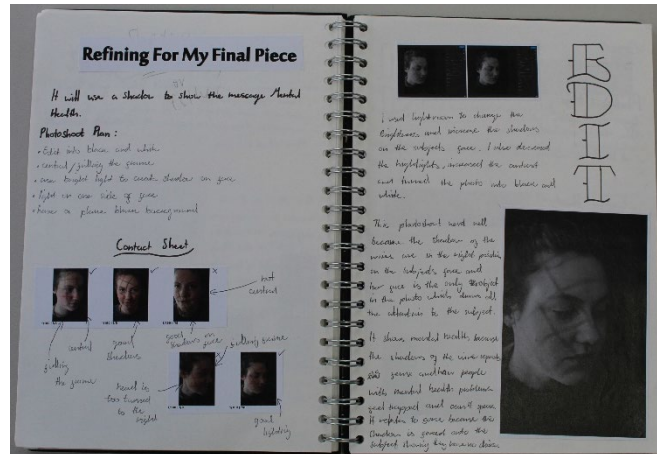 Refining For My Final Piece
It will use a shadow to show the message Mental
Health.
Photoshoot Plan:
• Edit into black and white
• central/filling the frame
• use bright light to create shadow on face
• light on one side of face
• have a plane black background
Contact Sheet
not
central
filling
the frame
central
good
shadows
good
shadows on
face
filling frame
head is
too turned
to the
right
good
lightning
EDIT
I used lightroom to change the
brightness and increase the shadows
on the subjects face. I also decreased
the highlights, increased the contrast
and turned the photo into black and
white.
This photoshoot went well
because the shadows of the
are in the right position
on the subjects face and
her face is the only subject
in the photo which draws all
the attention to the subject.
It shows mental health because
the shadows of the
people
with mental health problems
and
It because this
shadow is onto the
subject showing they have no choice